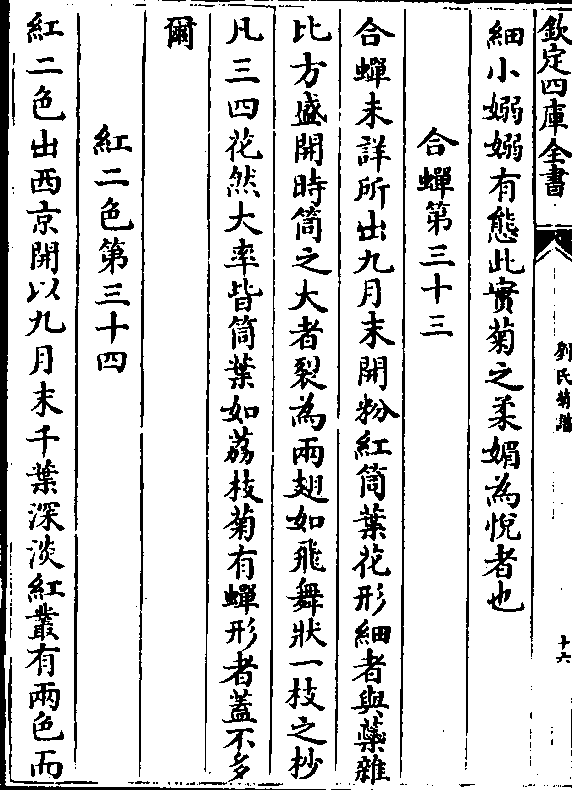 欽定四庫全書
劉氏菊譜
十六
細小嫋嫋有態此實菊之柔媚為悅者也
合蟬第三十三
合蟬未詳所出九月末開粉紅筒葉花形細者與蘂雜
比方盛開時筒之大者裂為兩翅如飛舞狀一枝之杪
凡三四花然大率皆筒葉如荔枝菊有蟬形者蓋不多
爾
紅二色第三十四
紅二色出西京開以九月末千葉深淡紅叢有兩色而